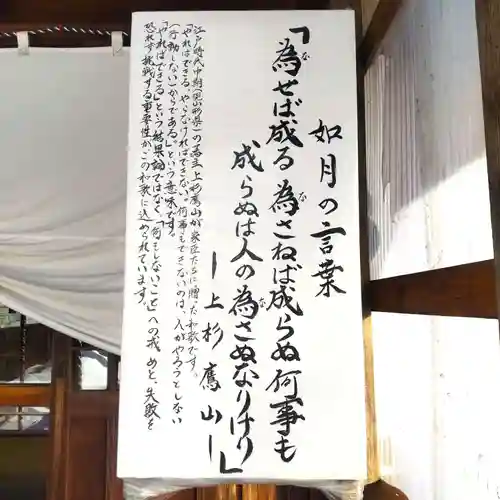 如月の言葉
「為せば成る 為さねば成らぬ何事も
成らぬは人の為さぬなりけり」
ー上杉鷹山ー
江戸時代中期(現山形県)の藩主上杉鷹山が家臣たちに贈った和歌です。
「やればできる、やらなければできない。何事もできないのは、人がやろうとしない
(行動しない)からである。」という意味です。
「やればできる」という結果論ではなく、「何もしないこと」への戒めと、失敗を
恐れず挑戦する重要性がこの和歌に込められています。